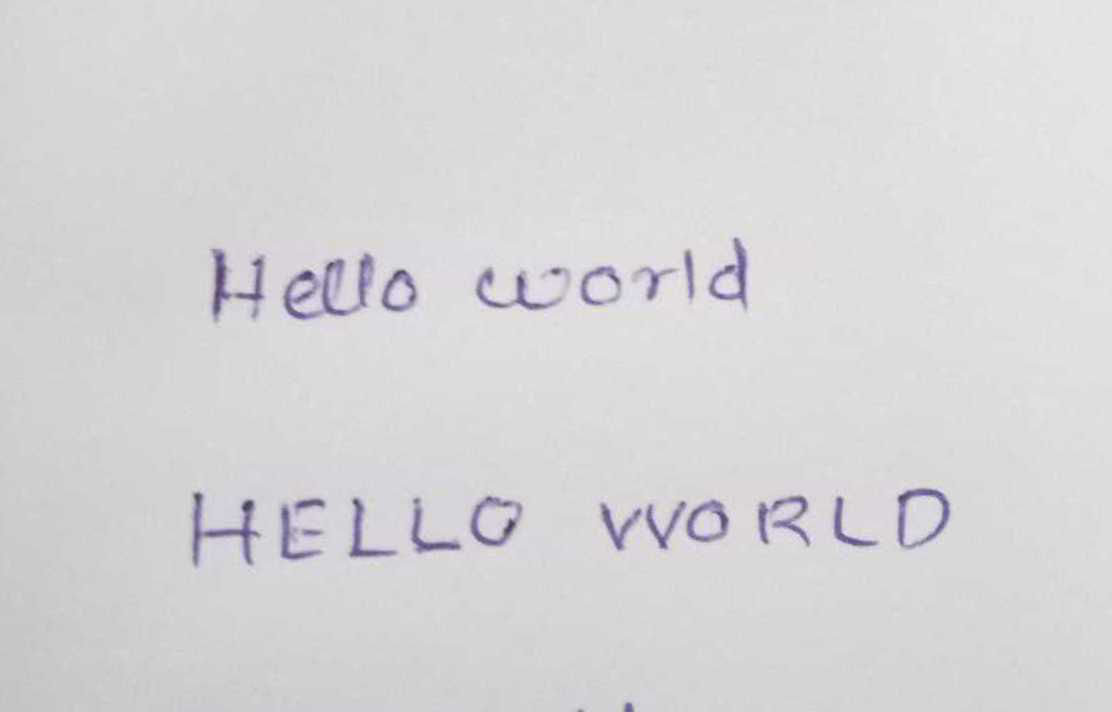 Hello world
HELLO WORLD